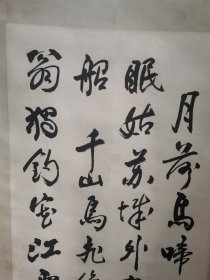 月落烏啼
眠姑苏城外
船 千山鳥飛
翁獨釣寒江